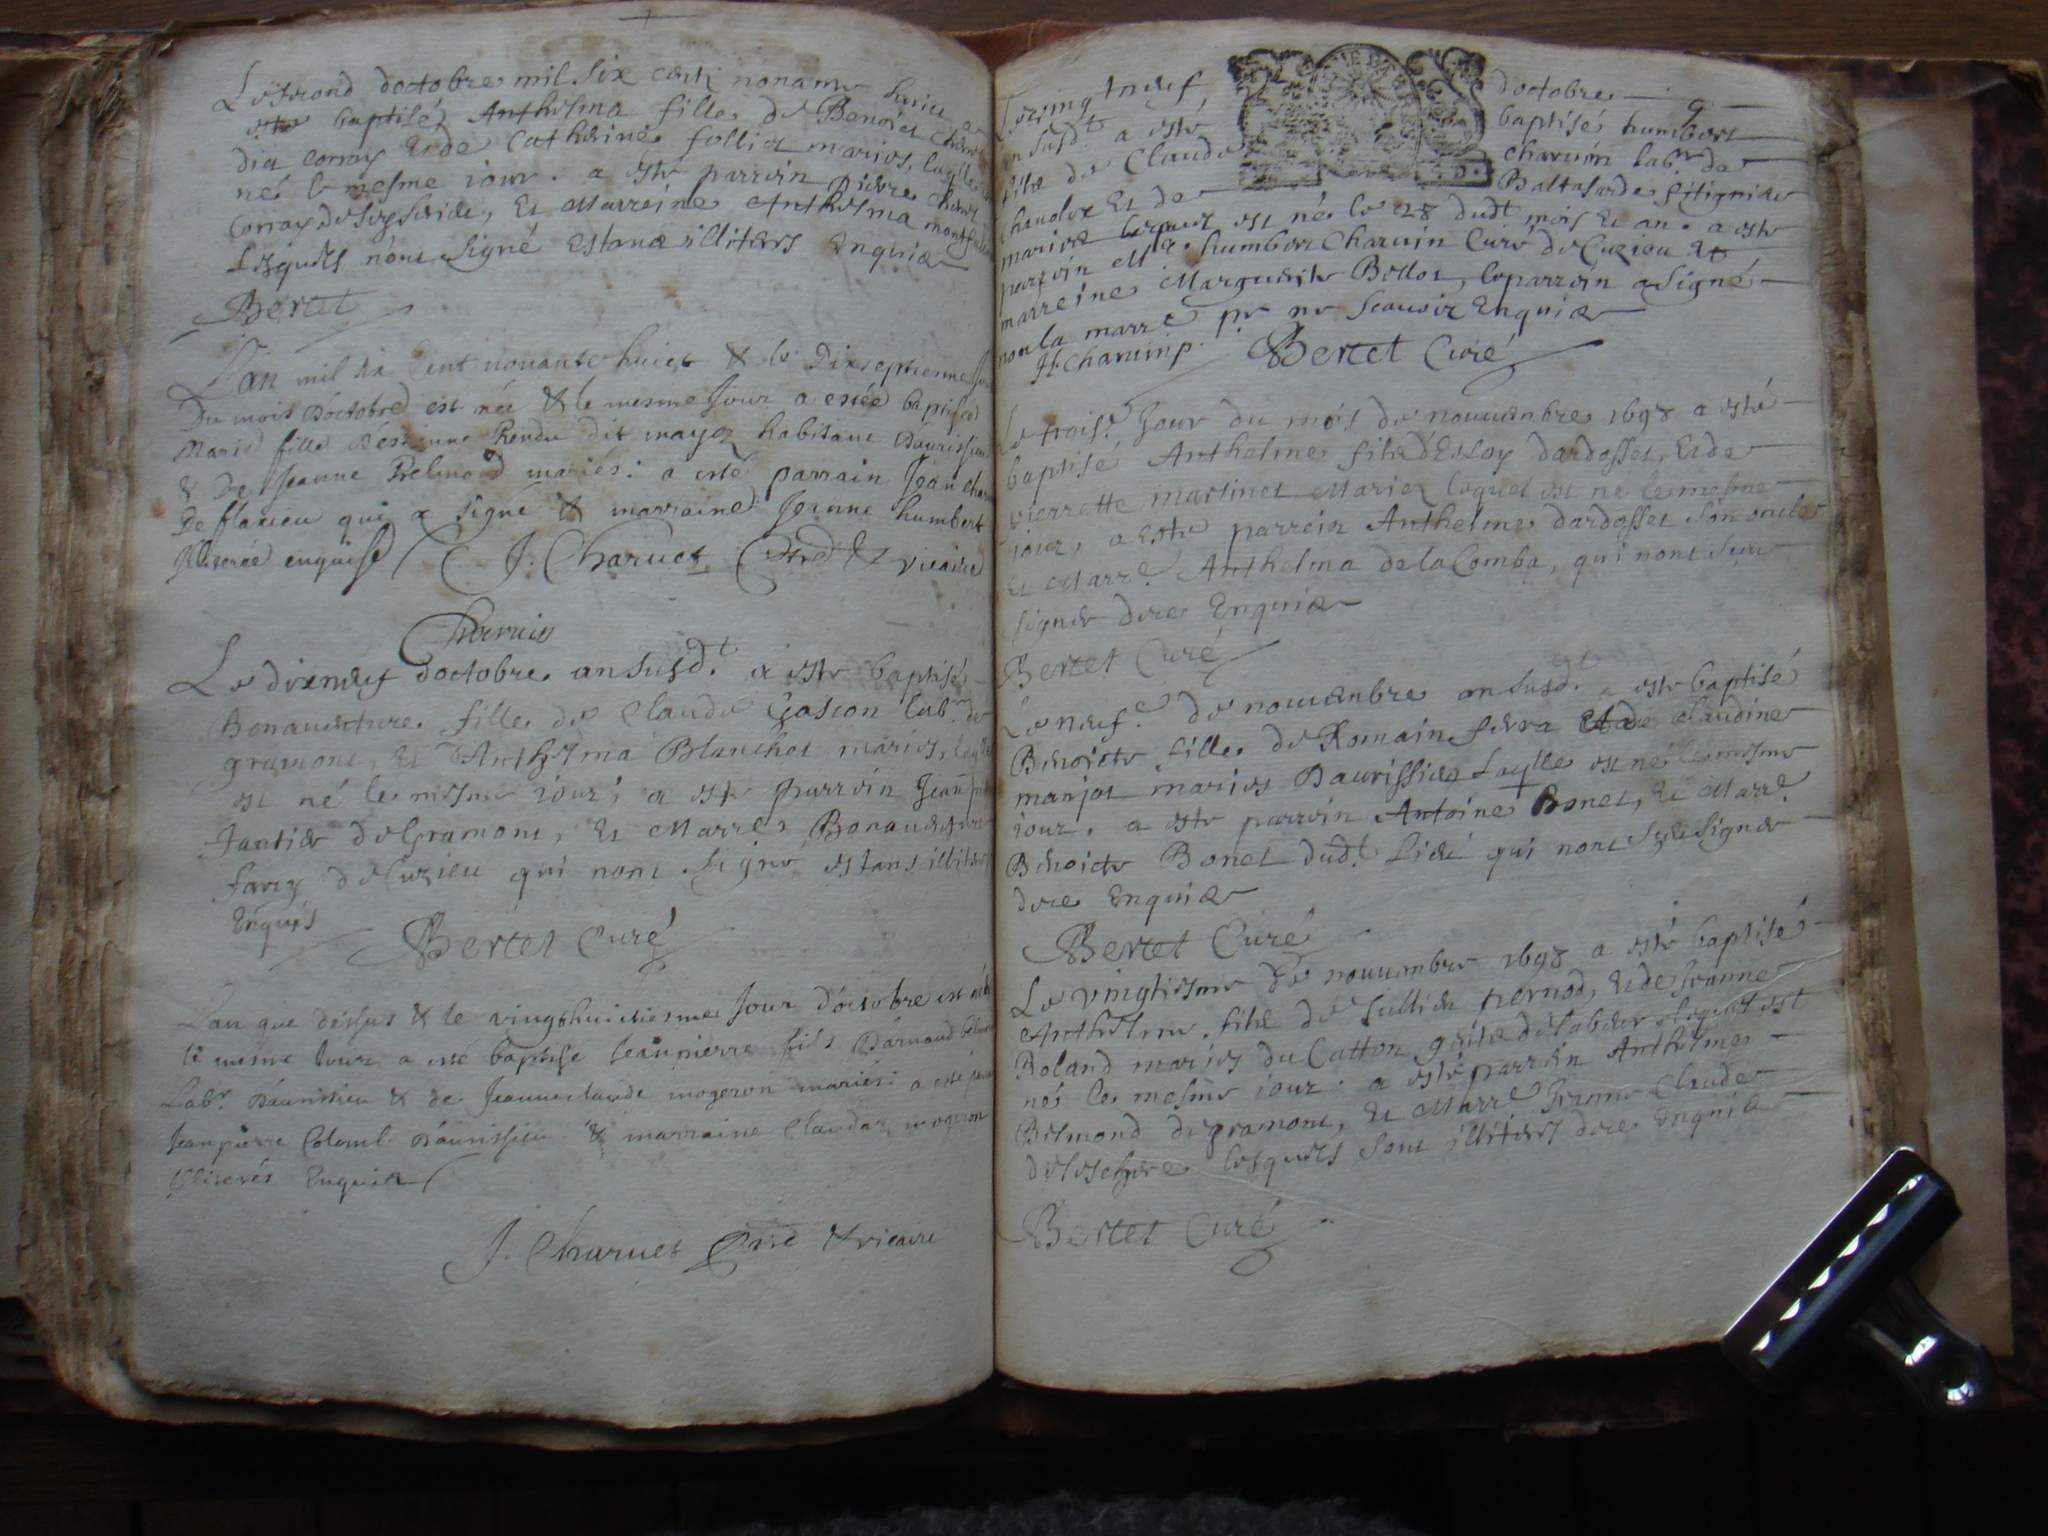 Le second doctobre mil six cent nonante huict a
esté baptisée Anthelma fille de Benoict
dit conray et de Catherine folliet mariés, laqlle
né le mesme iour. a esté parrein pierre
Conray de Seyserieu, et Marreine Anthelma
Lesquels nont signé estant illiters Enquis
Bertet
L'an mil six cent nouante huict & le dixseptienne Jour
Du mois d'octobre est née & le mesme Jour a estée baptisée
Marie fille d'estienne Rendu dit mayoz habitant d'aurissieu
& de Jeanne Prelmod mariés: a esté parrain Jean
de flaxieu qui a signé & marraine Jeanne humbert
Illiterée enquise J. Charuet & vicaire
Charuin
Le dixneuf doctobre an susd.t a este baptisé
Bonauenture fille de Claude Gascon lab.r de
gramont, et d'Anthelma Blanchet mariés, laqlle
est né le mesme iour; a este parrein Jean
Jantier de Gramont, et Marre Bonauenture
farcy de Cuzieu qui nont signé estans illiters
Enquis
Bertet Curé
L'an que dessus & le vingthuictiesme Jour d'octobre est né &
le mesme Jour a esté baptisé Jeanpierre fils d'arnaud
Lab.r d'aurissieu & de Jeanneclaude mogeron mariés: a esté
Jeanpierre Colomb d'aurissieu & marraine Claudaz mogeron
Illiterés Enquis
J. Charuet & vicaire
Le vingtneuf doctobre 9
an susd.t a esté baptisé humbert
filz de Claude charuin lab.r de
chaudoz et de Baltasarde fitignier
mariez lequel est né le 28 dudt mois et an. a este
parrein Mre humbert Charuin Curé de Cuzieu et
marreine Marguerite Bellot, le parrein a signé
non la marre pr ne scauoir Enquis
H Charuin p. Bertet Curé
Le trois.e Jour du mois de nouuembre 1698 a esté
baptisé Anthelme filz d'Esloy dardosset, et de
pierrette martinet Mariez lequel est né le mesme
iour, a este parrein Anthelme dardosset son oncle
et Marr.e Anthelma de la Comba, qui nont sceu
signer de ce Enquis
Bertet Curé
Le neuf.e de nouuembre an susd.t a este baptisé
Benoicte fille de Romain ferra et de claudine
manjot mariés Daurissieu Laqlle est né le mesme
iour. a este parrein Antoine Bonet, et Marr.e
Benoicte Bonet dudt Lieu qui nont sceu signer
de ce Enquis
Bertet Curé
Le vingtiesme de nouuembre 1698 a esté baptisé
Anthelme filz de Jullien pernod, et de Jeanne
Roland mariés du Catton lequel est
né le mesme iour. a esté parrein Anthelme
Bermond de gramont, et Marre Jeanne Claude
lesquels sont illiters de ce Enquis
Bertet Curé